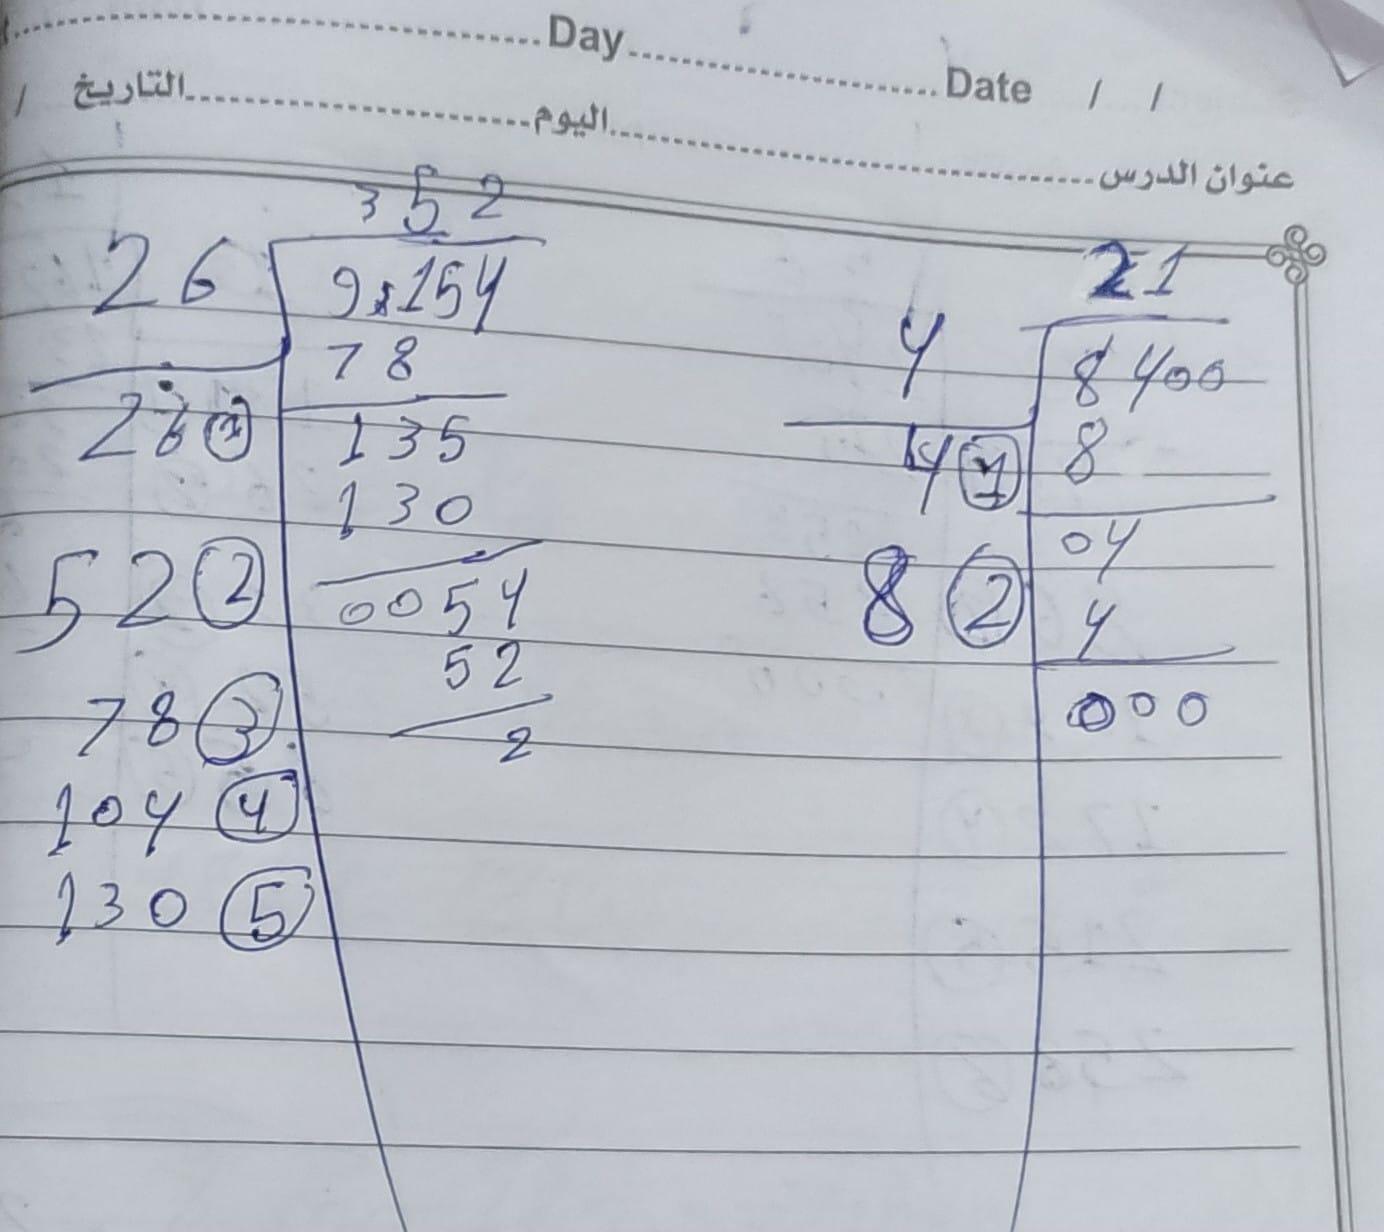 Day Date / /
/ التاريخ اليوم عنوان الدرس
352
26 9154
78
26 1 135
130
52 2 0054
52
78 3 2
104 4
130 5
21
4 8400
4 1 8
04
8 2 4
000